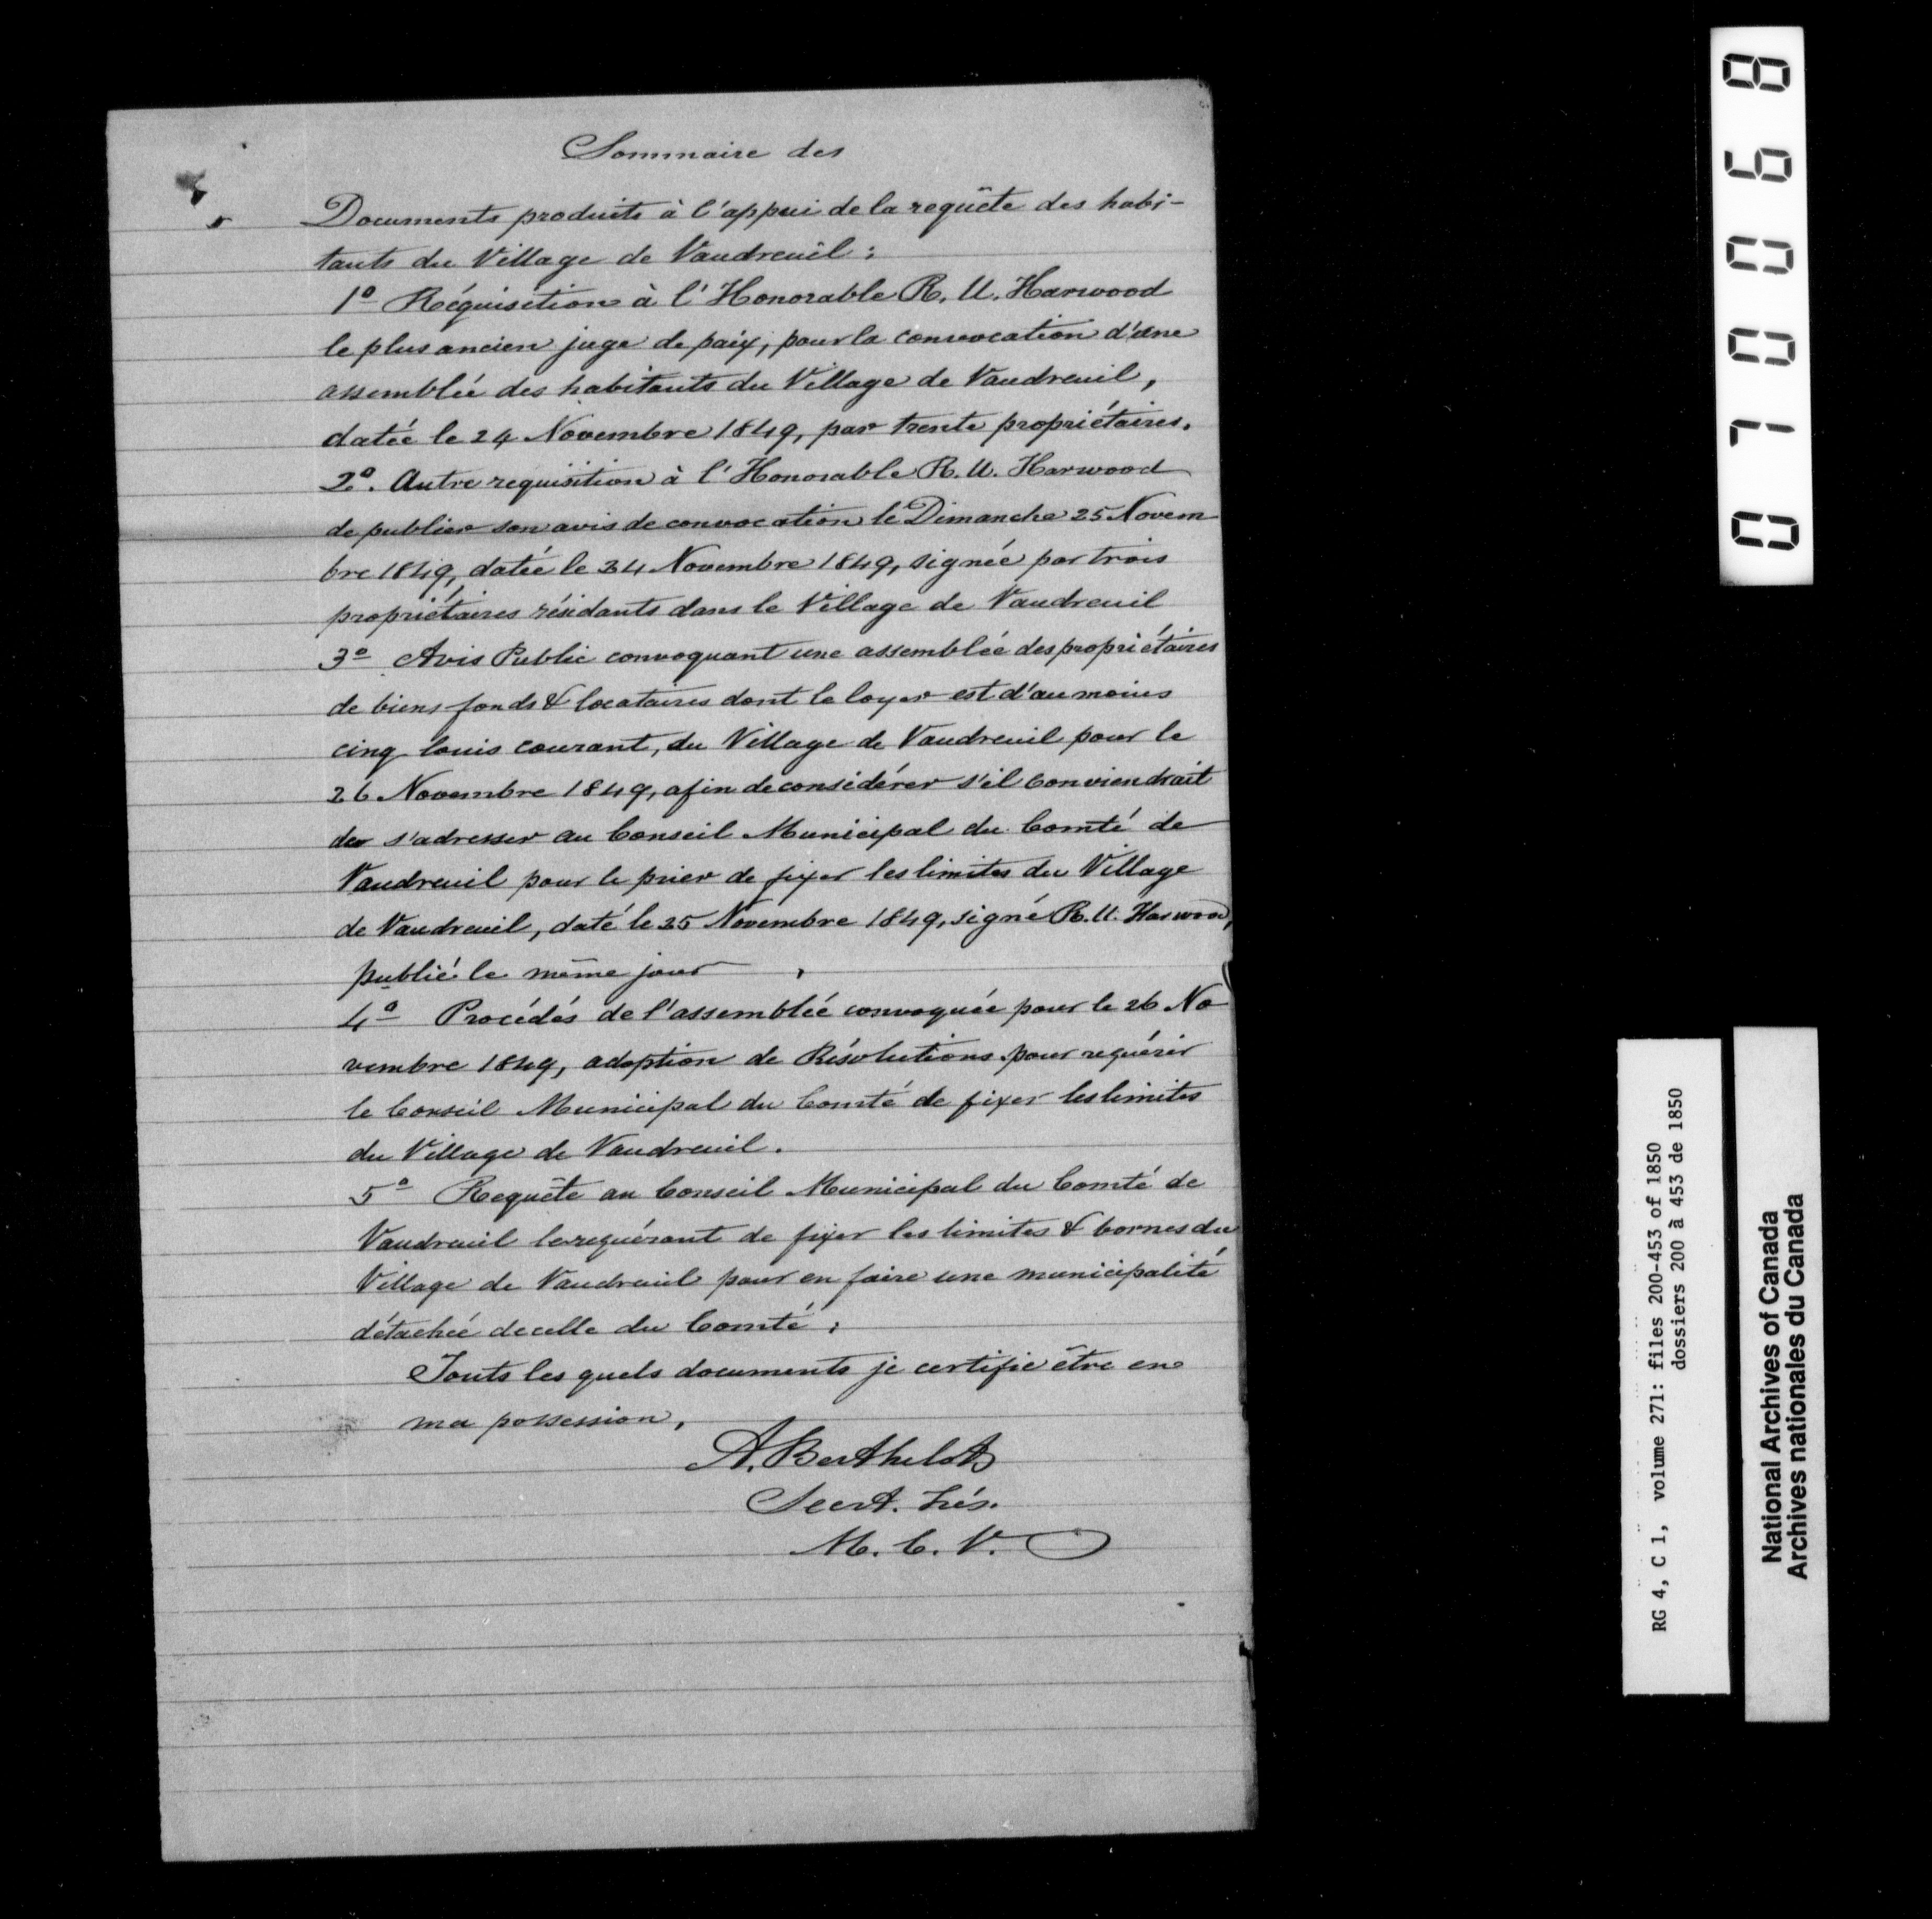 Sommaire des
Documents produits à l'appui de la requête des habi-
tants du Village de Vaudreuil :
1º Réquisition à l'Honorable R. U. Harwood
le plus ancien juge de paix, pour la convocation d'une
assemblée des habitants du Village de Vaudreuil,
datée le 24 Novembre 1849, par trente propriétaires.
2º. Autre requisition à l'Honorable R. U. Harwood
de publier son avis de convocation le Dimanche 25 Novem
bre 1849, datée le 24 Novembre 1849, signée par trois
propriétaires résidants dans le Village de Vaudreuil
3º Avis Public convoquant une assemblée des propriétaires
de biens fonds & locataires dont le loyer est d'au moins
cinq louis courant, du Village de Vaudreuil pour le
26 Novembre 1849, afin de considérer s'il conviendrait
de s'adresser au Conseil Municipal du Comté de
Vaudreuil pour le prier de fixer les limites du Village
de Vaudreuil, daté le 25 Novembre 1849, signé R. U. Harwood,
publié le même jour
4º Procédés de l'assemblée convoquée pour le 26 No
vembre 1849, adoption de Résolutions pour requérir
le Conseil Municipal du Comté de fixer les limites
du Village de Vaudreuil.
5º Requête au Conseil Municipal du Comté de
Vaudreuil le requérant de fixer les limites & bornes du
Village de Vaudreuil pour en faire une municipalité
détachée de celle du Comté ;
Touts les quels documents je certifie être en
ma possession,
A. Berthelot
Secrt. Trés.
M. C. V.
070068
RG 4, C 1, volume 271: files 200-453 of 1850
dossiers 200 à 453 de 1850
National Archives of Canada
Archives nationales du Canada